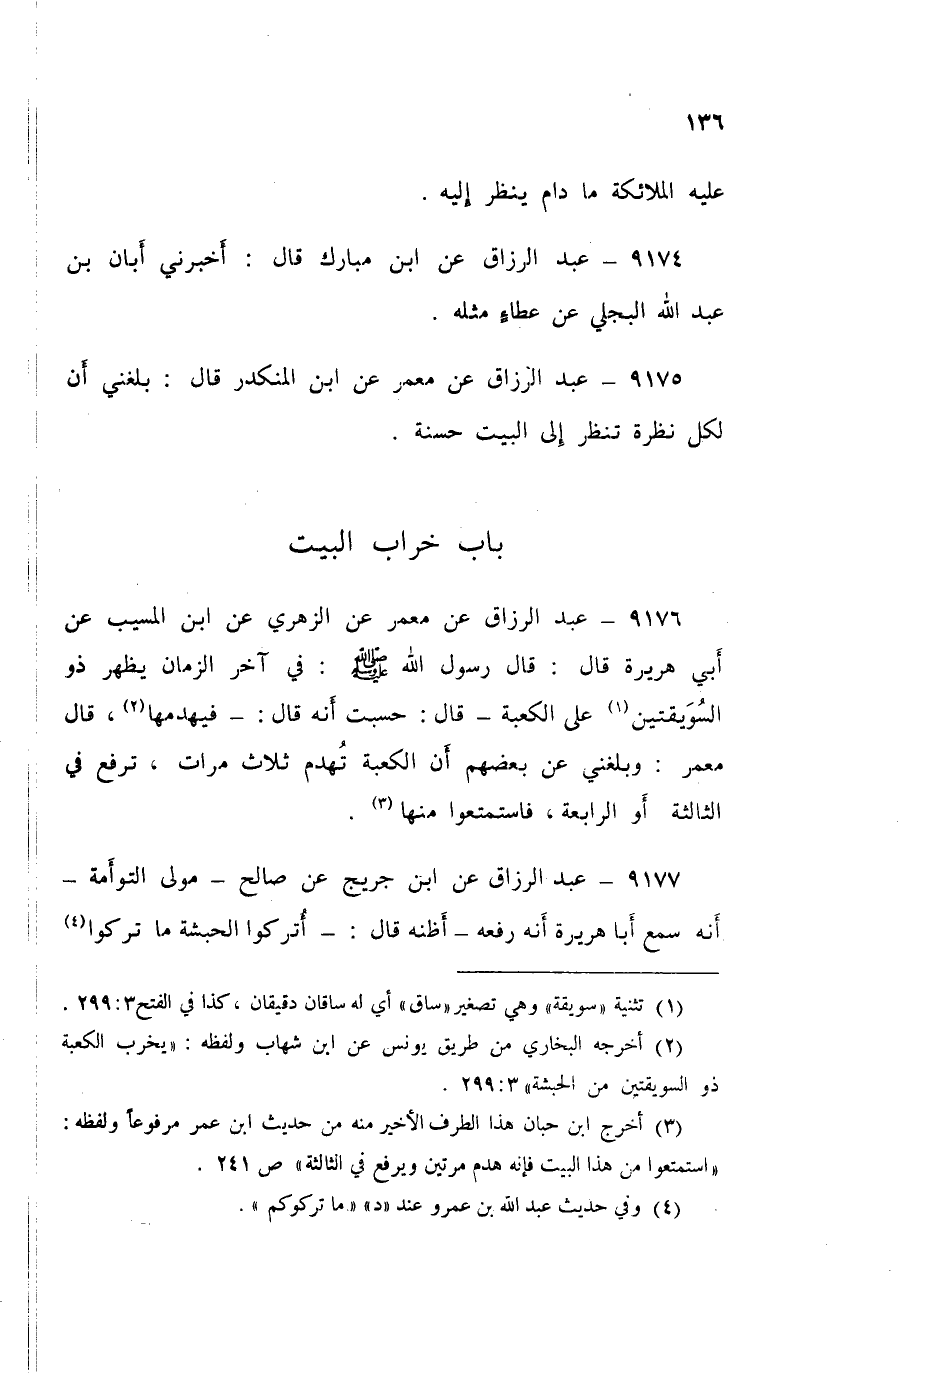 ١٣٦
عليه الملائكة ما دام ينظر إليه .
٩١٧٤ – عبد الرزاق عن ابن مبارك قال : أخبرني أبان بن
عبد الله البجلي عن عطاءٍ مثله .
٩١٧٥ – عبد الرزاق عن معمر عن ابن المنكدر قال : بلغني أن
لكل نظرة تنظر إلى البيت حسنة .
باب خراب البيت
٩١٧٦ – عبد الرزاق عن معمر عن الزهري عن ابن المسيب عن
أبي هريرة قال : قال رسول الله ﷺ : في آخر الزمان يظهر ذو
السُوَيقتين(١) على الكعبة – قال : حسبت أنه قال : – فيهدمها(٢) ، قال
معمر : وبلغني عن بعضهم أن الكعبة تُهدم ثلاث مرات ، ترفع في
الثالثة أو الرابعة ، فاستمتعوا منها(٣) .
٩١٧٧ – عبد الرزاق عن ابن جريج عن صالح – مولى التوأمة –
أنه سمع أبا هريرة أنه رفعه – أظنه قال : – أُتركوا الحبشة ما تركوا(٤)
(١) تثنية «سويقة» وهي تصغير «ساق» أي له ساقان دقيقان ، كذا في الفتح ٣ : ٢٩٩ .
(٢) أخرجه البخاري من طريق يونس عن ابن شهاب ولفظه : «يخرب الكعبة
ذو السويقتين من الحبشة» ٣ : ٢٩٩ .
(٣) أخرج ابن حبان هذا الطرف الأخير منه من حديث ابن عمر مرفوعاً ولفظه :
«استمتعوا من هذا البيت فإنه هدم مرتين ويرفع في الثالثة» ص ٢٤١ .
(٤) وفي حديث عبد الله بن عمرو عند «د» «ما تركوكم» .